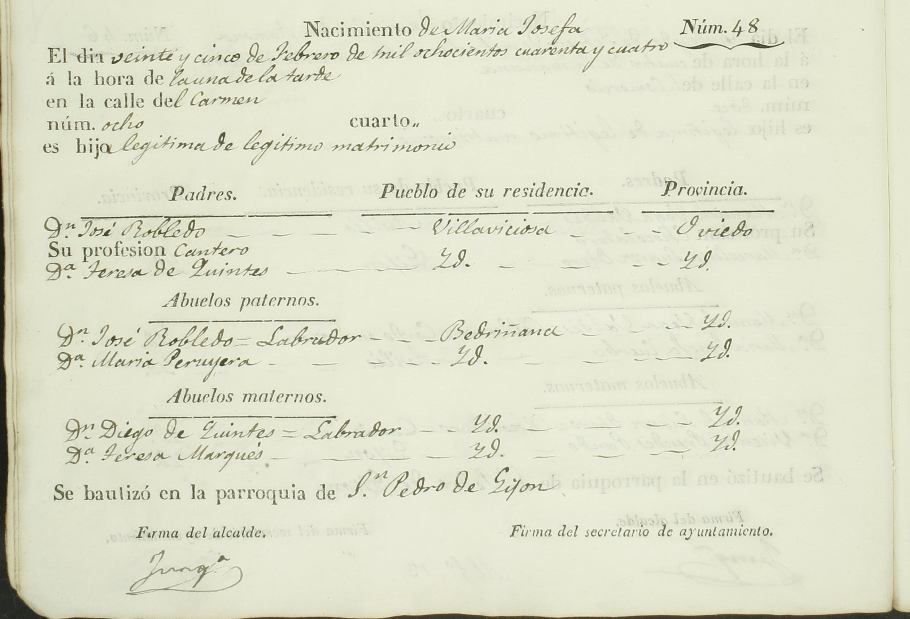 Nacimiento de Maria Josefa Núm. 48
El dia veinte y cinco de Febrero de mil ochocientos cuarenta y cuatro
á la hora de la una de la tarde
en la calle del Carmen
núm. ocho cuarto „
es hija legitima de legitimo matrimonio
Padres. Pueblo de su residencia. Provincia.
Dn. José Robledo Villaviciosa Oviedo
Su profesion Cantero
Da. Teresa de Quintes Yd. Yd.
Abuelos paternos.
Dn. José Robledo = Labrador Bedriñana Yd.
Da. Maria Peruyera Yd. Yd.
Abuelos maternos.
Dn. Diego de Quintes = Labrador Yd. Yd.
Da. Teresa Marques Yd. Yd.
Se bautizó en la parroquia de Sn. Pedro de Gijon
Firma del alcalde. Firma del secretario de ayuntamiento.